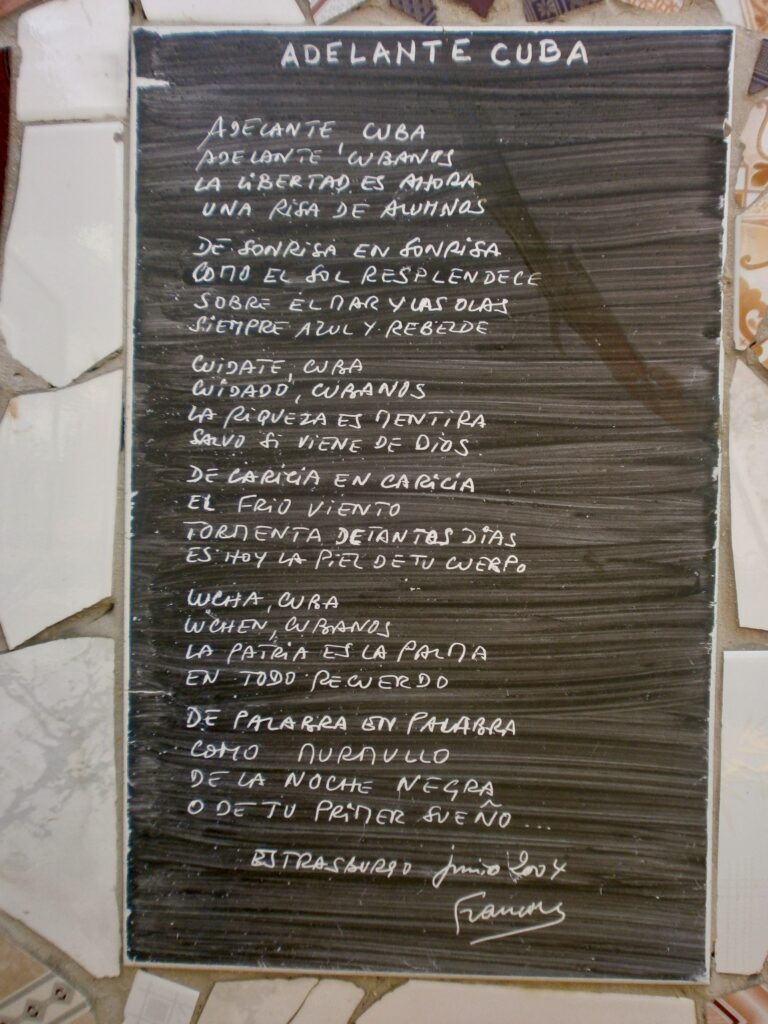 ADELANTE CUBA
ADELANTE CUBA
ADELANTE CUBANOS
LA LIBERTAD ES AHORA
UNA RISA DE ALUMNOS
DE SONRISA EN SONRISA
COMO EL SOL RESPLENDECE
SOBRE EL MAR Y LAS OLAS
SIEMPRE AZUL Y REBELDE
CUIDATE, CUBA
CUIDADO, CUBANOS
LA RIQUEZA ES MENTIRA
SALVO SI VIENE DE DIOS
DE CARICIA EN CARICIA
EL FRIO VIENTO
TORMENTA DE TANTOS DÍAS
ES HOY LA PIEL DE TU CUERPO
LUCHA, CUBA
LUCHEN, CUBANOS
LA PATRIA ES LA PALMA
EN TODO RECUERDO
DE PALABRA EN PALABRA
COMO MURMULLO
DE LA NOCHE NEGRA
O DE TU PRIMER SUEÑO...
ESTRASBURGO junio 2004